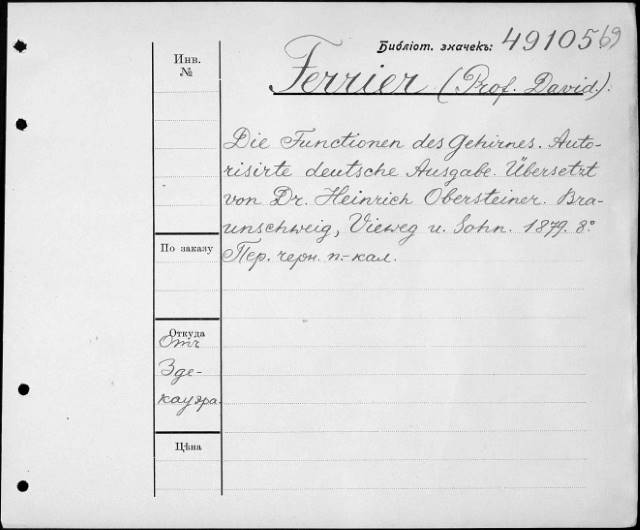 Библіот. значекъ: 49105 69
Инв. №
Ferrier (Prof. David.).
Die Functionen des Gehirnes. Auto-
risirte deutsche Ausgabe. Übersetzt
von Dr. Heinrich Obersteiner. Bra-
unschweig, Vieweg u. Sohn. 1879. 8º
Пер. черн. п.-кал.
По заказу
Откуда
Отъ
Зде-
кауэра.
Цѣна